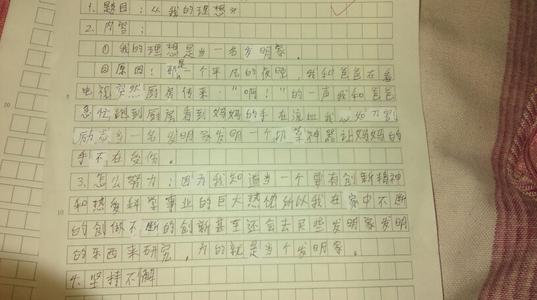 1.题目:《我的理想》
2.内容:
①我的理想是当一名发明家。
②原因:那是一个平凡的夜晚,我和爸爸在看
电视突然厨房传来:"啊!"的一声我和爸爸
急忙跑到厨房看到妈妈的手在流血我
励志当一名发明家发明一个切菜神器让妈妈的
手不在受伤。
3.怎么努力:因为我知道当一个要有创新精神
和热爱科学事业的巨大热情所以我在家中不断
的创做不断的创新甚至还会去买些发明家发明
的东西来研究,为的就是当个发明家。
4.坚持不解
5
10
10